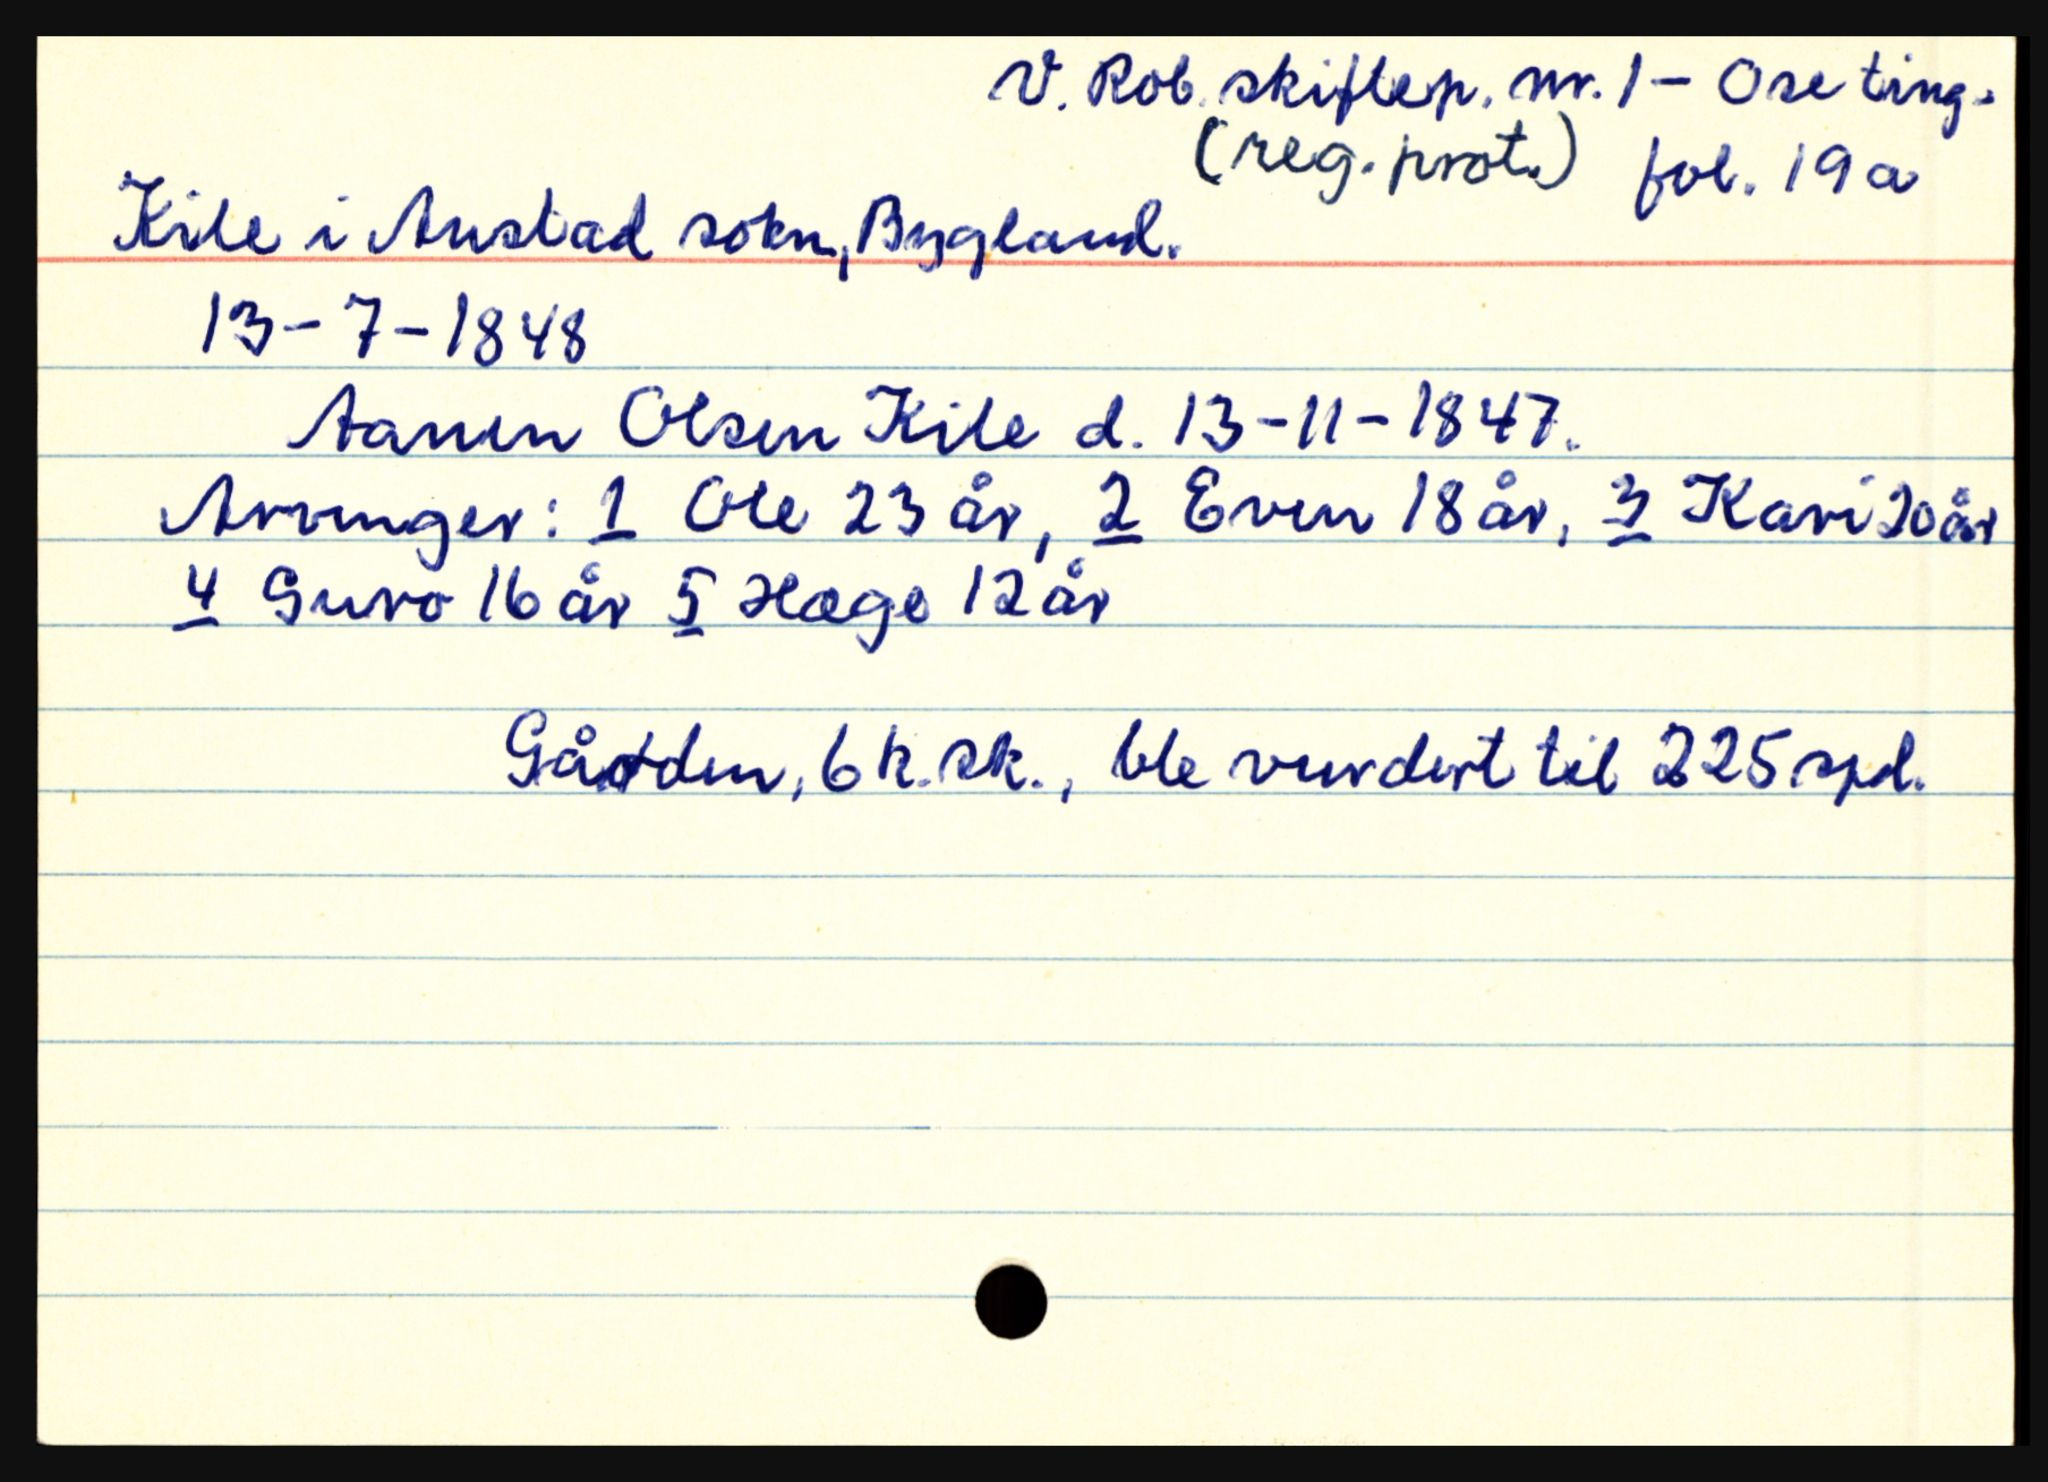 V. Rob. skiftep. nr. 1 – Ose ting.
(reg. prot.) fol. 19a
Kile i Austad sokn, Bygland.
13-7-1848
Aanen Olsen Kile d. 13-11-1847.
Arvinger: 1 Ole 23 år, 2 Even 18 år, 3 Kari 20 år
4 Guro 16 år 5 Hæge 12 år
Gården, 6 k. sk., ble vurdert til 225 spd.